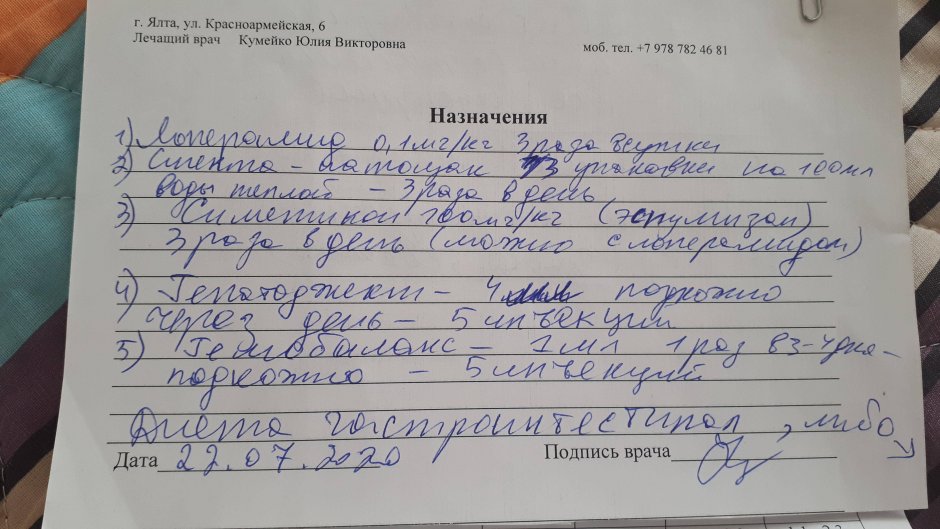 г. Ялта, ул. Красноармейская, 6
Лечащий врач Кумейко Юлия Викторовна
моб. тел. +7 978 782 46 81
Назначения
1) Лоперамид 0,1мг/кг 3 раза в сутки
2) Смекта – натощак 1/3 упаковки на 100мл
воды теплой – 3 раза в день
3) Симетикон 100мг/кг (эспумизан)
3 раза в день (можно с лоперамидом)
4) Гепатоджект – подкожно
через день – 5 инъекций
5) Гемобаланс – 1мл 1 раз в 3-4 дня –
подкожно – 5 инъекций
Диета гастроинтестинал, либо
Дата 22.07.2020
Подпись врача